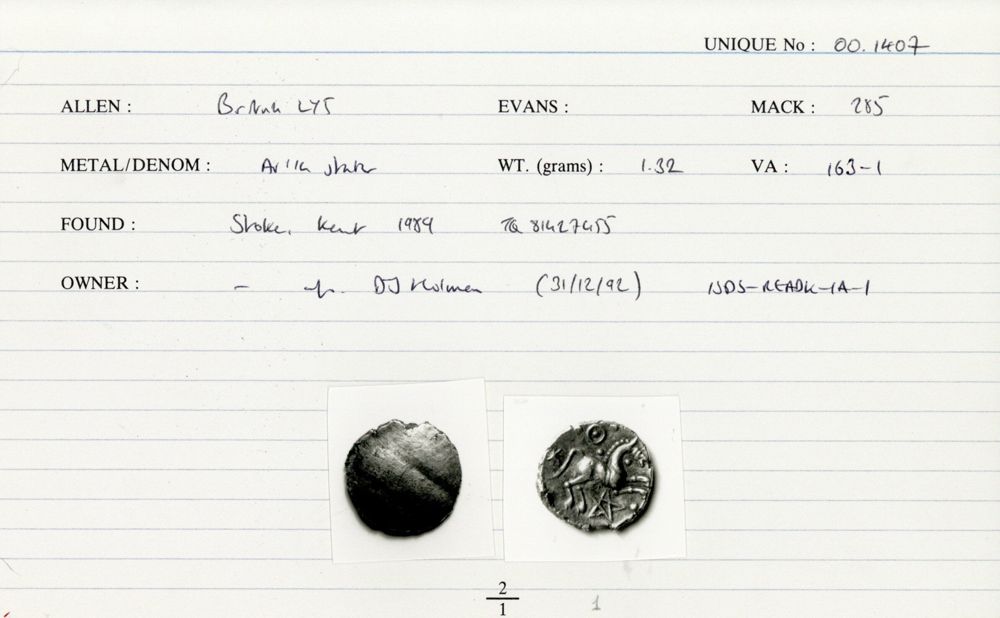 UNIQUE No : 00.1407
ALLEN : British LY5 EVANS : MACK : 285
METAL/DENOM : AV 1/4 stater WT. (grams) : 1.32 VA : 163-1
FOUND : Stoke, Kent 1989 TQ 81427455
OWNER : - DJ Holman (31/12/92)
2
1 1